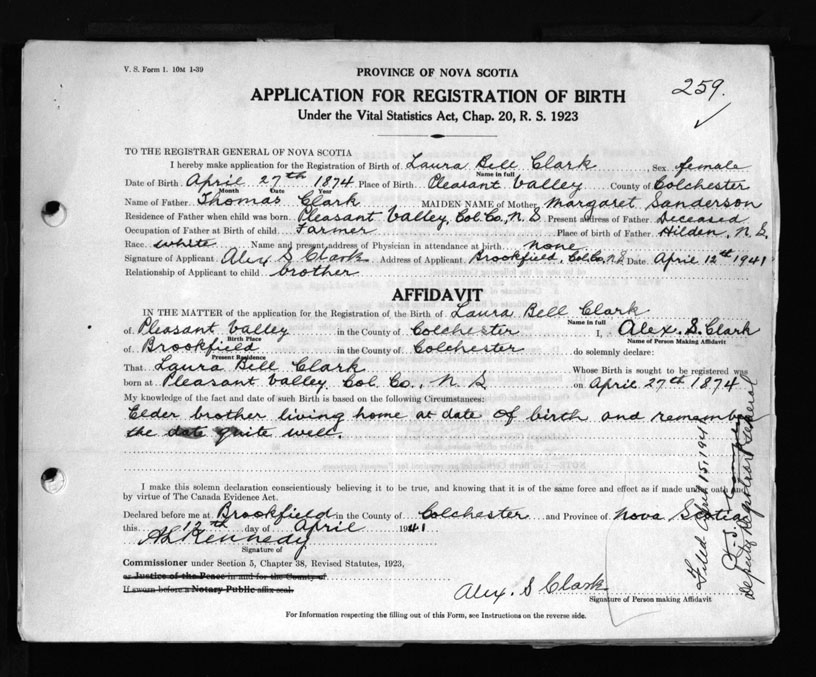 V. S. Form 1. 10M 1-39
PROVINCE OF NOVA SCOTIA
259.
APPLICATION FOR REGISTRATION OF BIRTH
Under the Vital Statistics Act, Chap. 20, R. S. 1923
TO THE REGISTRAR GENERAL OF NOVA SCOTIA
I hereby make application for the Registration of Birth of Laura Bell Clark Sex female
Name in full
Date of Birth April 27th 1874 Place of Birth Pleasant Valley County of Colchester
Month Date Year
Name of Father Thomas Clark MAIDEN NAME of Mother Margaret Sanderson
Residence of Father when child was born Pleasant Valley, Col. Co., N. S Present address of Father Deceased
Occupation of Father at Birth of child Farmer Place of birth of Father Hilden, N. S.
Race white Name and present address of Physician in attendance at birth none
Signature of Applicant Alex S Clark Address of Applicant Brookfield, Col. Co, N. S Date April 12th 1941
Relationship of Applicant to child brother
AFFIDAVIT
IN THE MATTER of the application for the Registration of the Birth of Laura Bell Clark
Name in full
of Pleasant Valley in the County of Colchester I, Alex. S. Clark
Birth Place Name of Person Making Affidavit
of Brookfield in the County of Colchester do solemnly declare:
Present Residence
That Laura Bell Clark Whose Birth is sought to be registered was
born at Pleasant Valley Col. Co., N. S on April 27th 1874
My knowledge of the fact and date of such Birth is based on the following Circumstances:
Elder brother living home at date of birth and remember
the date quite well.
I make this solemn declaration conscientiously believing it to be true, and knowing that it is of the same force and effect as if made under oath and
by virtue of The Canada Evidence Act.
Declared before me at Brookfield in the County of Colchester and Province of Nova Scotia
this 12th day of April 1941
A L Kennedy
Signature of
Commissioner under Section 5, Chapter 38, Revised Statutes, 1923,
or Justice of the Peace in and for the County of
If sworn before a Notary Public affix seal.
Alex. S Clark
Signature of Person making Affidavit
For Information respecting the filling out of this Form, see Instructions on the reverse side.
Filed April 15, 1941
Deputy Registrar General